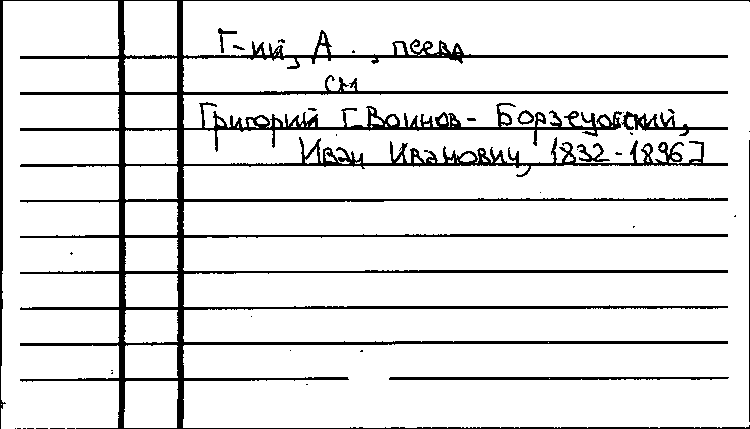 Г-ий, А., псевд
см
Григорий [-Воинов-Борзецовский,
Иван Иванович, 1832-1896]